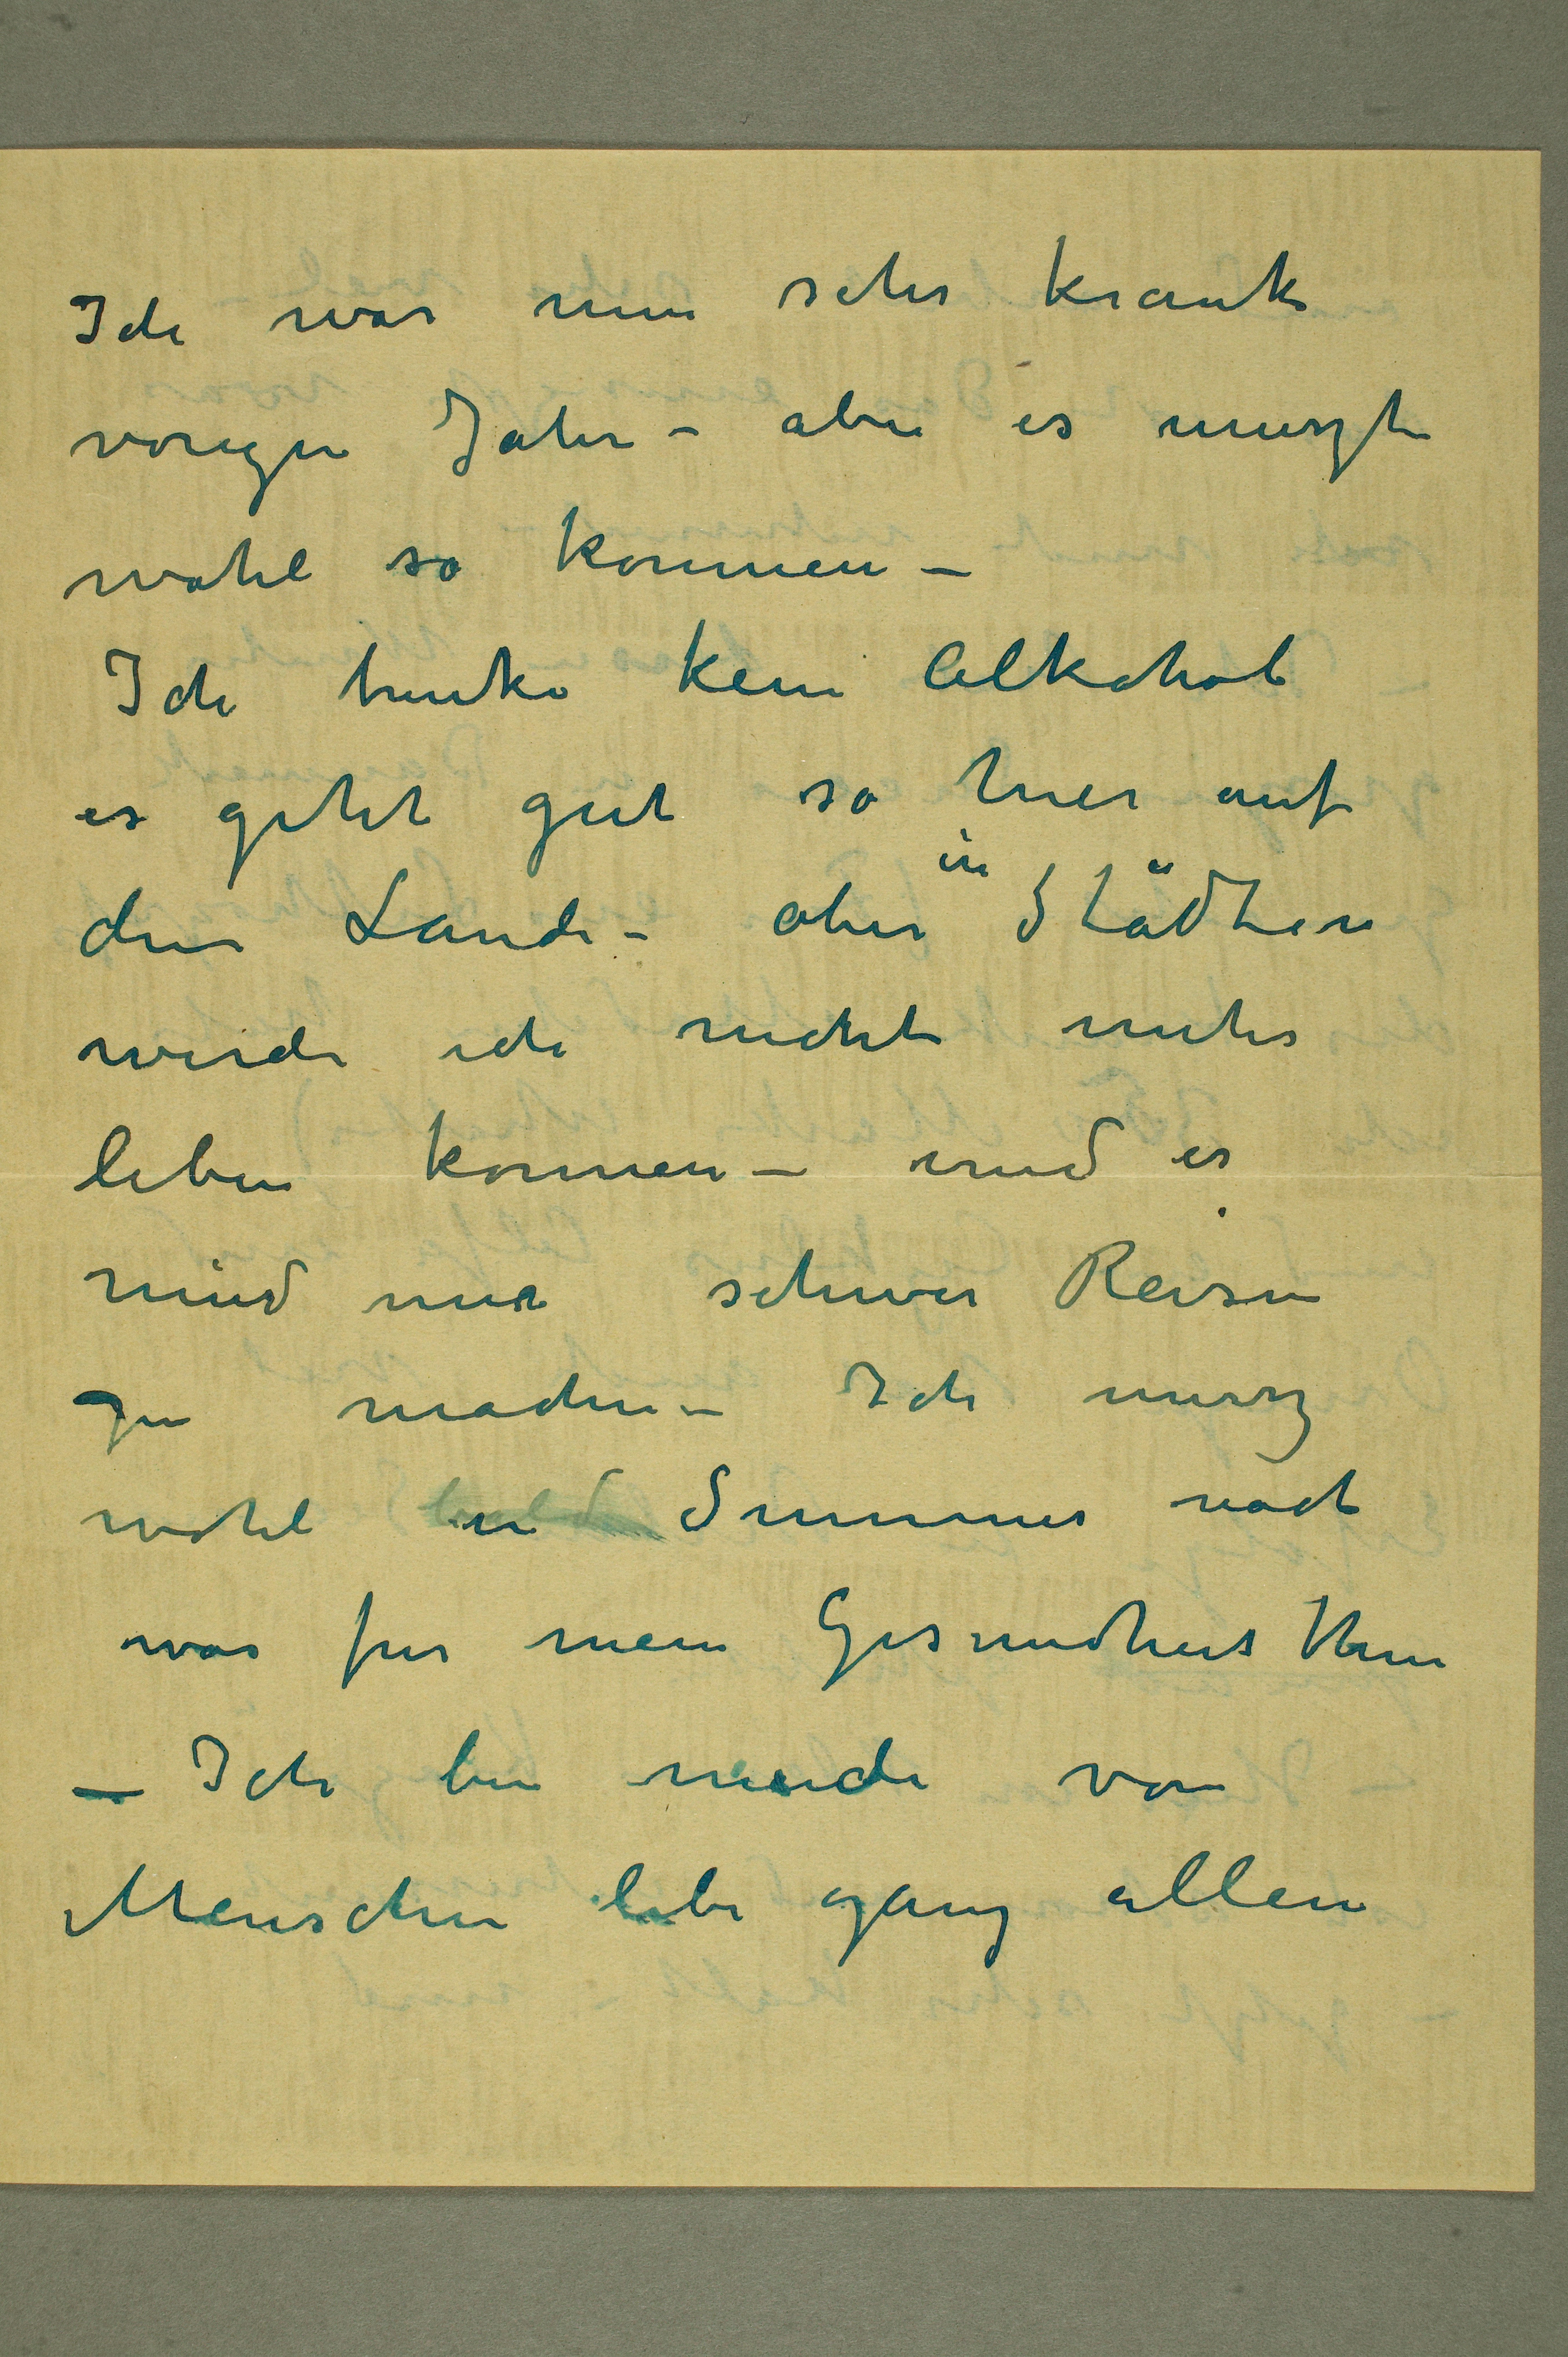 Ich war nun sehr krank
vorigen Jahr – aber es muszte
wohl so kommen –
Ich trinke kein Alkohol
es geht gut so hier auf
den Lande – aber in Städten
werde ich nicht mehr
leben konnen – und es
wird mir schwer Reisen
zu machen – Ich musz
wohl in Summer noch
was fur mein Gesundheit thun
– Ich bin mude von
Menschen lebe ganz allein